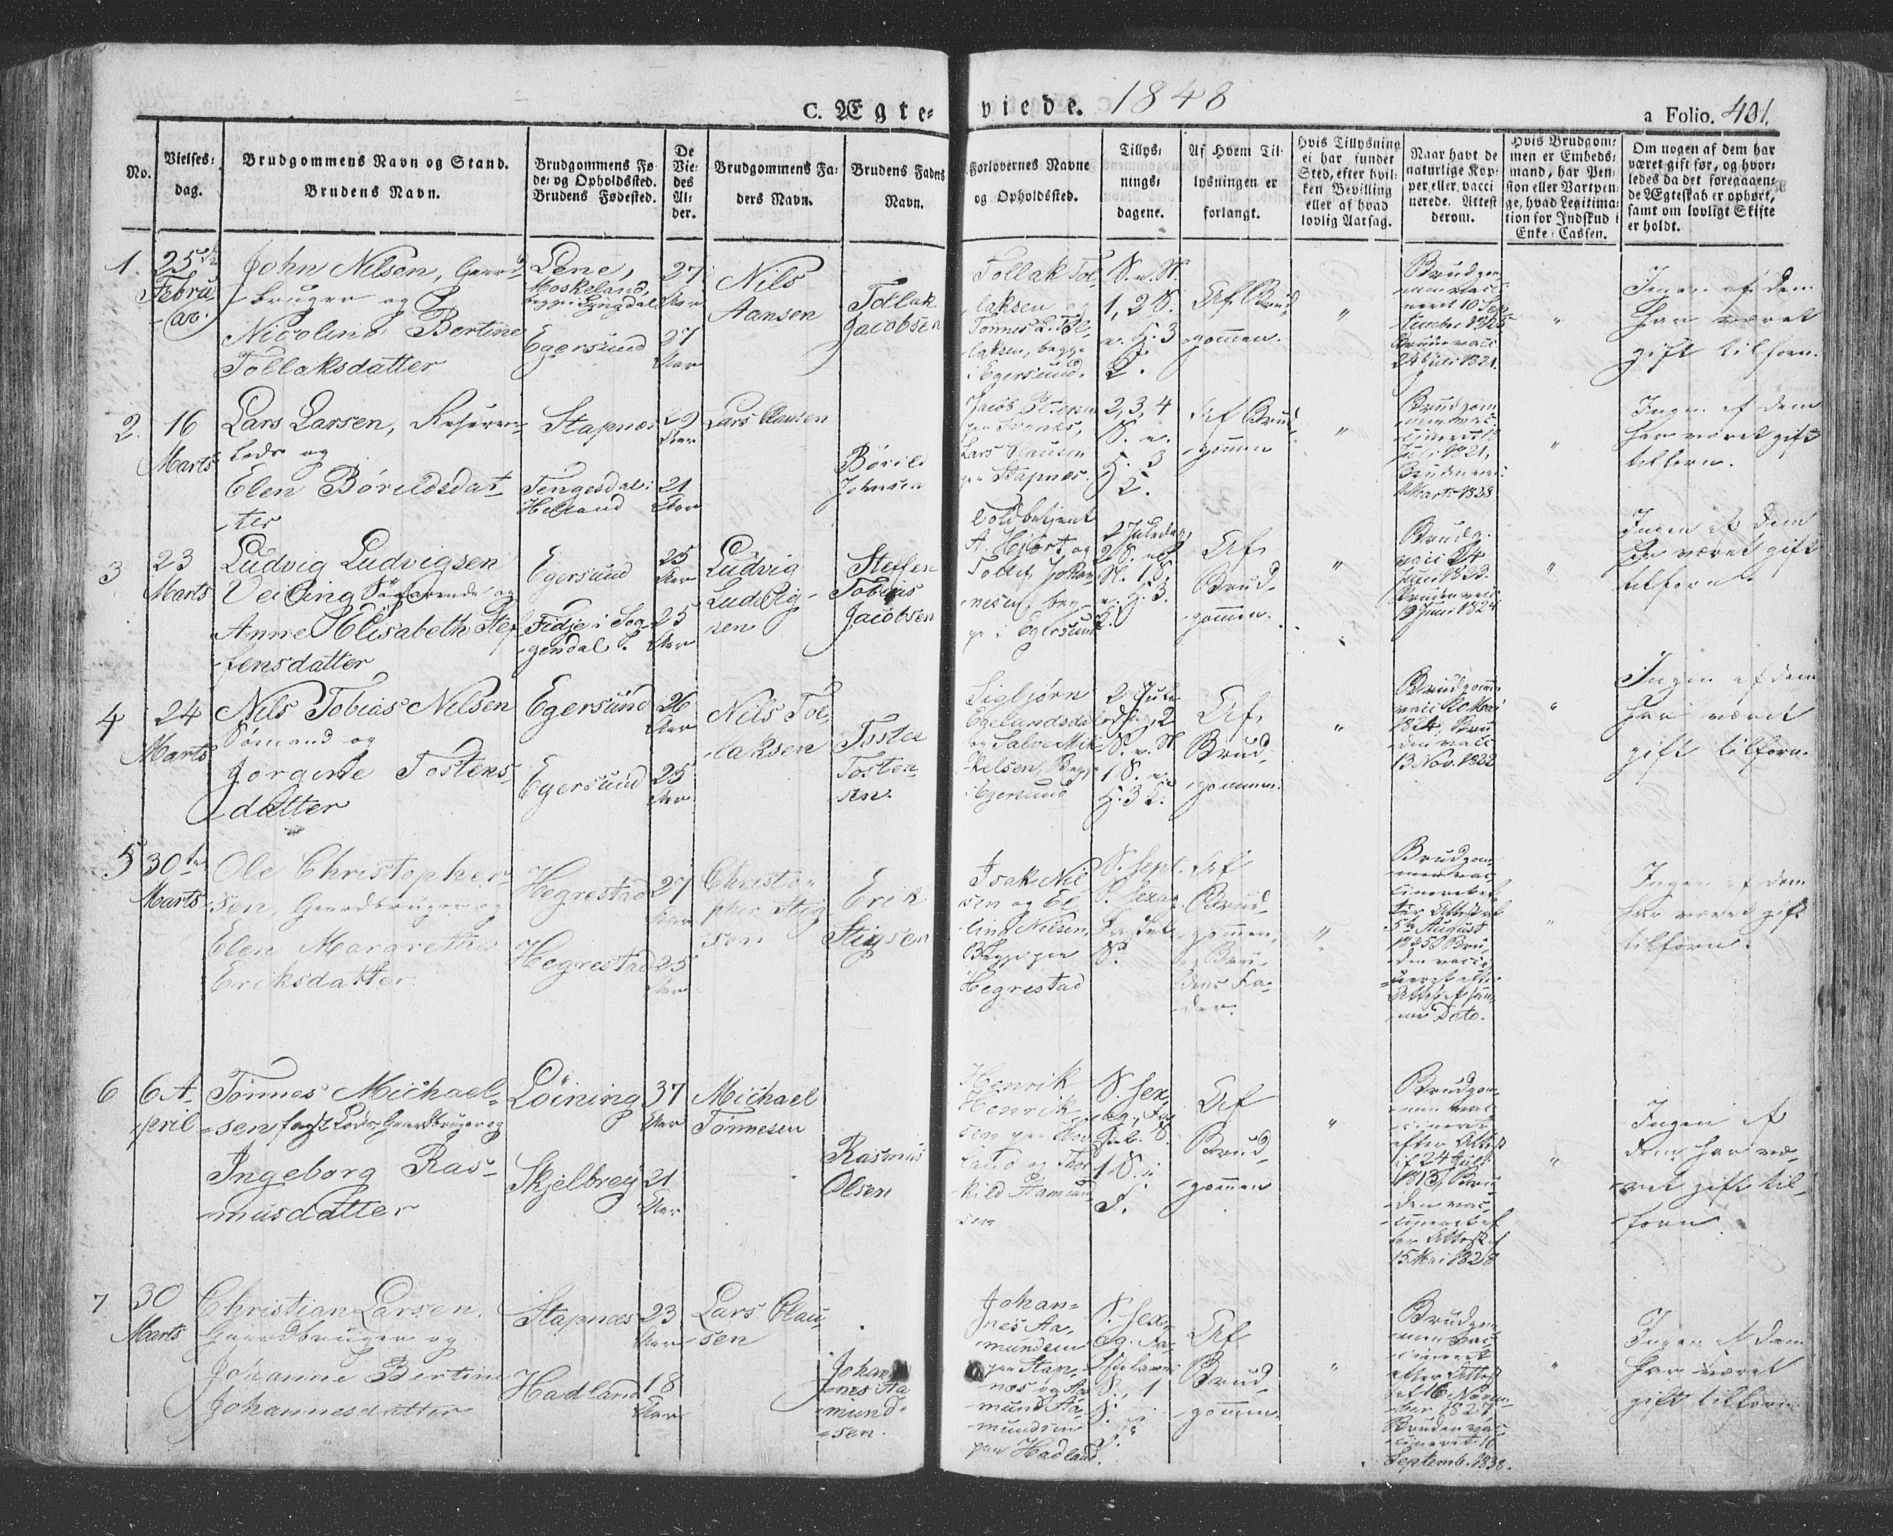 C. Ægte-viede. 1848
a Folio. 401.
No.
Vielses-
dag.
Brudgommens Navn og Stand.
Brudens Navn.
Brudgommens Fø-
de- og Opholdssted.
Brudens Fødested.
De
Vie-
des
Al-
der.
Brudgommens Fa-
ders Navn.
Brudens Faders
Navn.
Forlovernes Navne
og Opholdssted.
Tillys-
nings-
dagene.
Af Hvem Til-
lysningen er
forlangt.
Hvis Tillysning
ei har fundet
Sted, efter hvil-
ken Bevilling
eller af hvad
lovlig Aarsag.
Naar havt de
naturlige Kop-
per eller vacci
nerede. Attest
derom.
Hvis Brudgom-
men er Embeds-
mand, har Pen-
sion eller Vartpen-
ge, hvad Legitima-
tion for Indskud i
Enke-Cassen.
Om nogen af dem har
været gift før, og hvor-
ledes da det foregaaen-
de Ægteskab er ophørt,
samt om lovligt Skifte
er holdt.
1.
25de
Febru
-ar.
John Nilsen, Gaard-
bruger og
Nicoline Bertine
Tollaksdatter
Lene,
Moskeland,
begge i Lyngdal
Egersund
27
Aar
27
Aar
Nils
Aansen
Tollak
Jacobsen
Tollak Tol-
laksen og
Tønnes L. Tol-
laksen, begge
i Egersund.
S. e. N.
1, 2 S.
e. H. 3
T.
Af Brud
-gommen.
"
Brudgom-
men vacci-
neret 10 Sep-
tember 1825
Bruden vacc.
24 Juli 1821.
"
Ingen af dem
har været
gift tilforn.
2.
16
Marts
Lars Larsen,
og
Elen Børildsdat-
-ter
Stapnæs
Tengesdal i
Helland
29
Aar
21
Aar
Lars Clausen
Børild
Johnsen
Jacob
paa
Lars Clausen
paa Stapnæs.
2, 3, 4
S. e.
H. 3
T.
Af Brud-
-gommen
"
Brudgom-
men vac-
cineret 1
Juli 1821,
Bruden vacc.
Marts 1828
"
Ingen af dem
har været gift
tilforn.
3
23
Marts
Ludvig Ludvigsen
Veiding Søfarende og
Anne Elisabeth Stef-
fensdatter
Egersund
Fidje i Sog-
gendal S.
25
Aar
25
Aar
Ludvig
Ludvig-
sen
Steffen
Tobias
Jacobsen
Toldbetjent
A. Hjort og
Tollef Johan-
nesen, beg-
ge i Egersund
2 Juledag,
Af
Brud-
gommen.
"
Brudg.
vacc. 24
Juni 1823.
Bruden vacc.
19 Juni 1824
"
Ingen af dem
har været gift
tilforn.
4
24
Marts
Nils Tobias Nilsen
Sømand og
Jørgine Tostens-
datter
Egersund
Egersund
26
Aar
25
Aar
Nils Tol-
laksen
Tosten
Tosten-
sen.
Sigbjørn
Egelandsdal
og Salve Mik-
kelsen, Begge
i Egersund
2 Jule
dag, 2
S. e. N.
1 S. e.
H. 3 T.
Af
Brud-
gommen.
"
Brudgomm.
vacc. 20 Mai
1824. Bru-
den vacc.
13 Nov. 1822
"
Ingen af dem
har været
gift tilforn.
5
30te
Marts
Ole Christopher-
sen, Gaardbruger og
Elen Margrethe
Eriksdatter
Hegrestad
Hegrestad
27
Aar
25
Aar
Christo-
pher Stig-
sen
Erik
Stigsen
Isak Nil-
sen og El-
ling Nilsen,
Begge paa
Hegrestad
S. Sept.
S. Sexa-
Fastel-
S.
Af
Brud-
gommen,
og Bru-
dens Fa-
der.
"
Brudgom-
men vac-
cineret ef-
ter Attest af
5te August
1825 Bru-
den vacci-
neret efter
Attest af sam-
me Dato.
"
Ingen af dem
har været gift
tilforn.
6
6 A-
pril
Tønnes Michael-
-sen fagt Løds, Gaardbruger og
Ingeborg Ras-
musdatter
Løining
Skjelbrey
37
Aar
21
Aar
Michael
Tønnesen
Rasmus
Olsen
Henrik
Henrik-
sen paa Hov-
land og Thor-
kild Aamund-
sen
S. Sex-
ag., Fa-
stel. S.
1 S. i
F.
Af
Brud-
gommen
"
Brudgom-
men vac-
cineret
efter Attest
af 24 Juli
1813, Bru-
den vac-
cineret ef-
ter Attest af
15 Mai 1828
"
Ingen af
dem har væ-
ret gift til-
forn
7
30
Marts
Christian Larsen.
Gaardbruger og
Johanne Bertine
Johannesdatter
Stapnæs
Hadland
23
Aar
18
Aar
Lars Clau-
sen
Johan-
nes Aa-
mund-
sen.
Johan-
nes Aa-
mundsen
paa Stap-
næs og Aa-
mund Aa-
mundsen
paa Hadland.
S. Sex-
ag. Fa-
stelavns
S., 1
S. i
F.
Af
Brud-
gommen.
"
Brudgom-
men vac-
cineret
efter Attest
af 16 Novem-
ber 1827,
Bruden vac-
cineret 16
Septemb. 1830.
"
Ingen af dem
har været
gift tilforn.